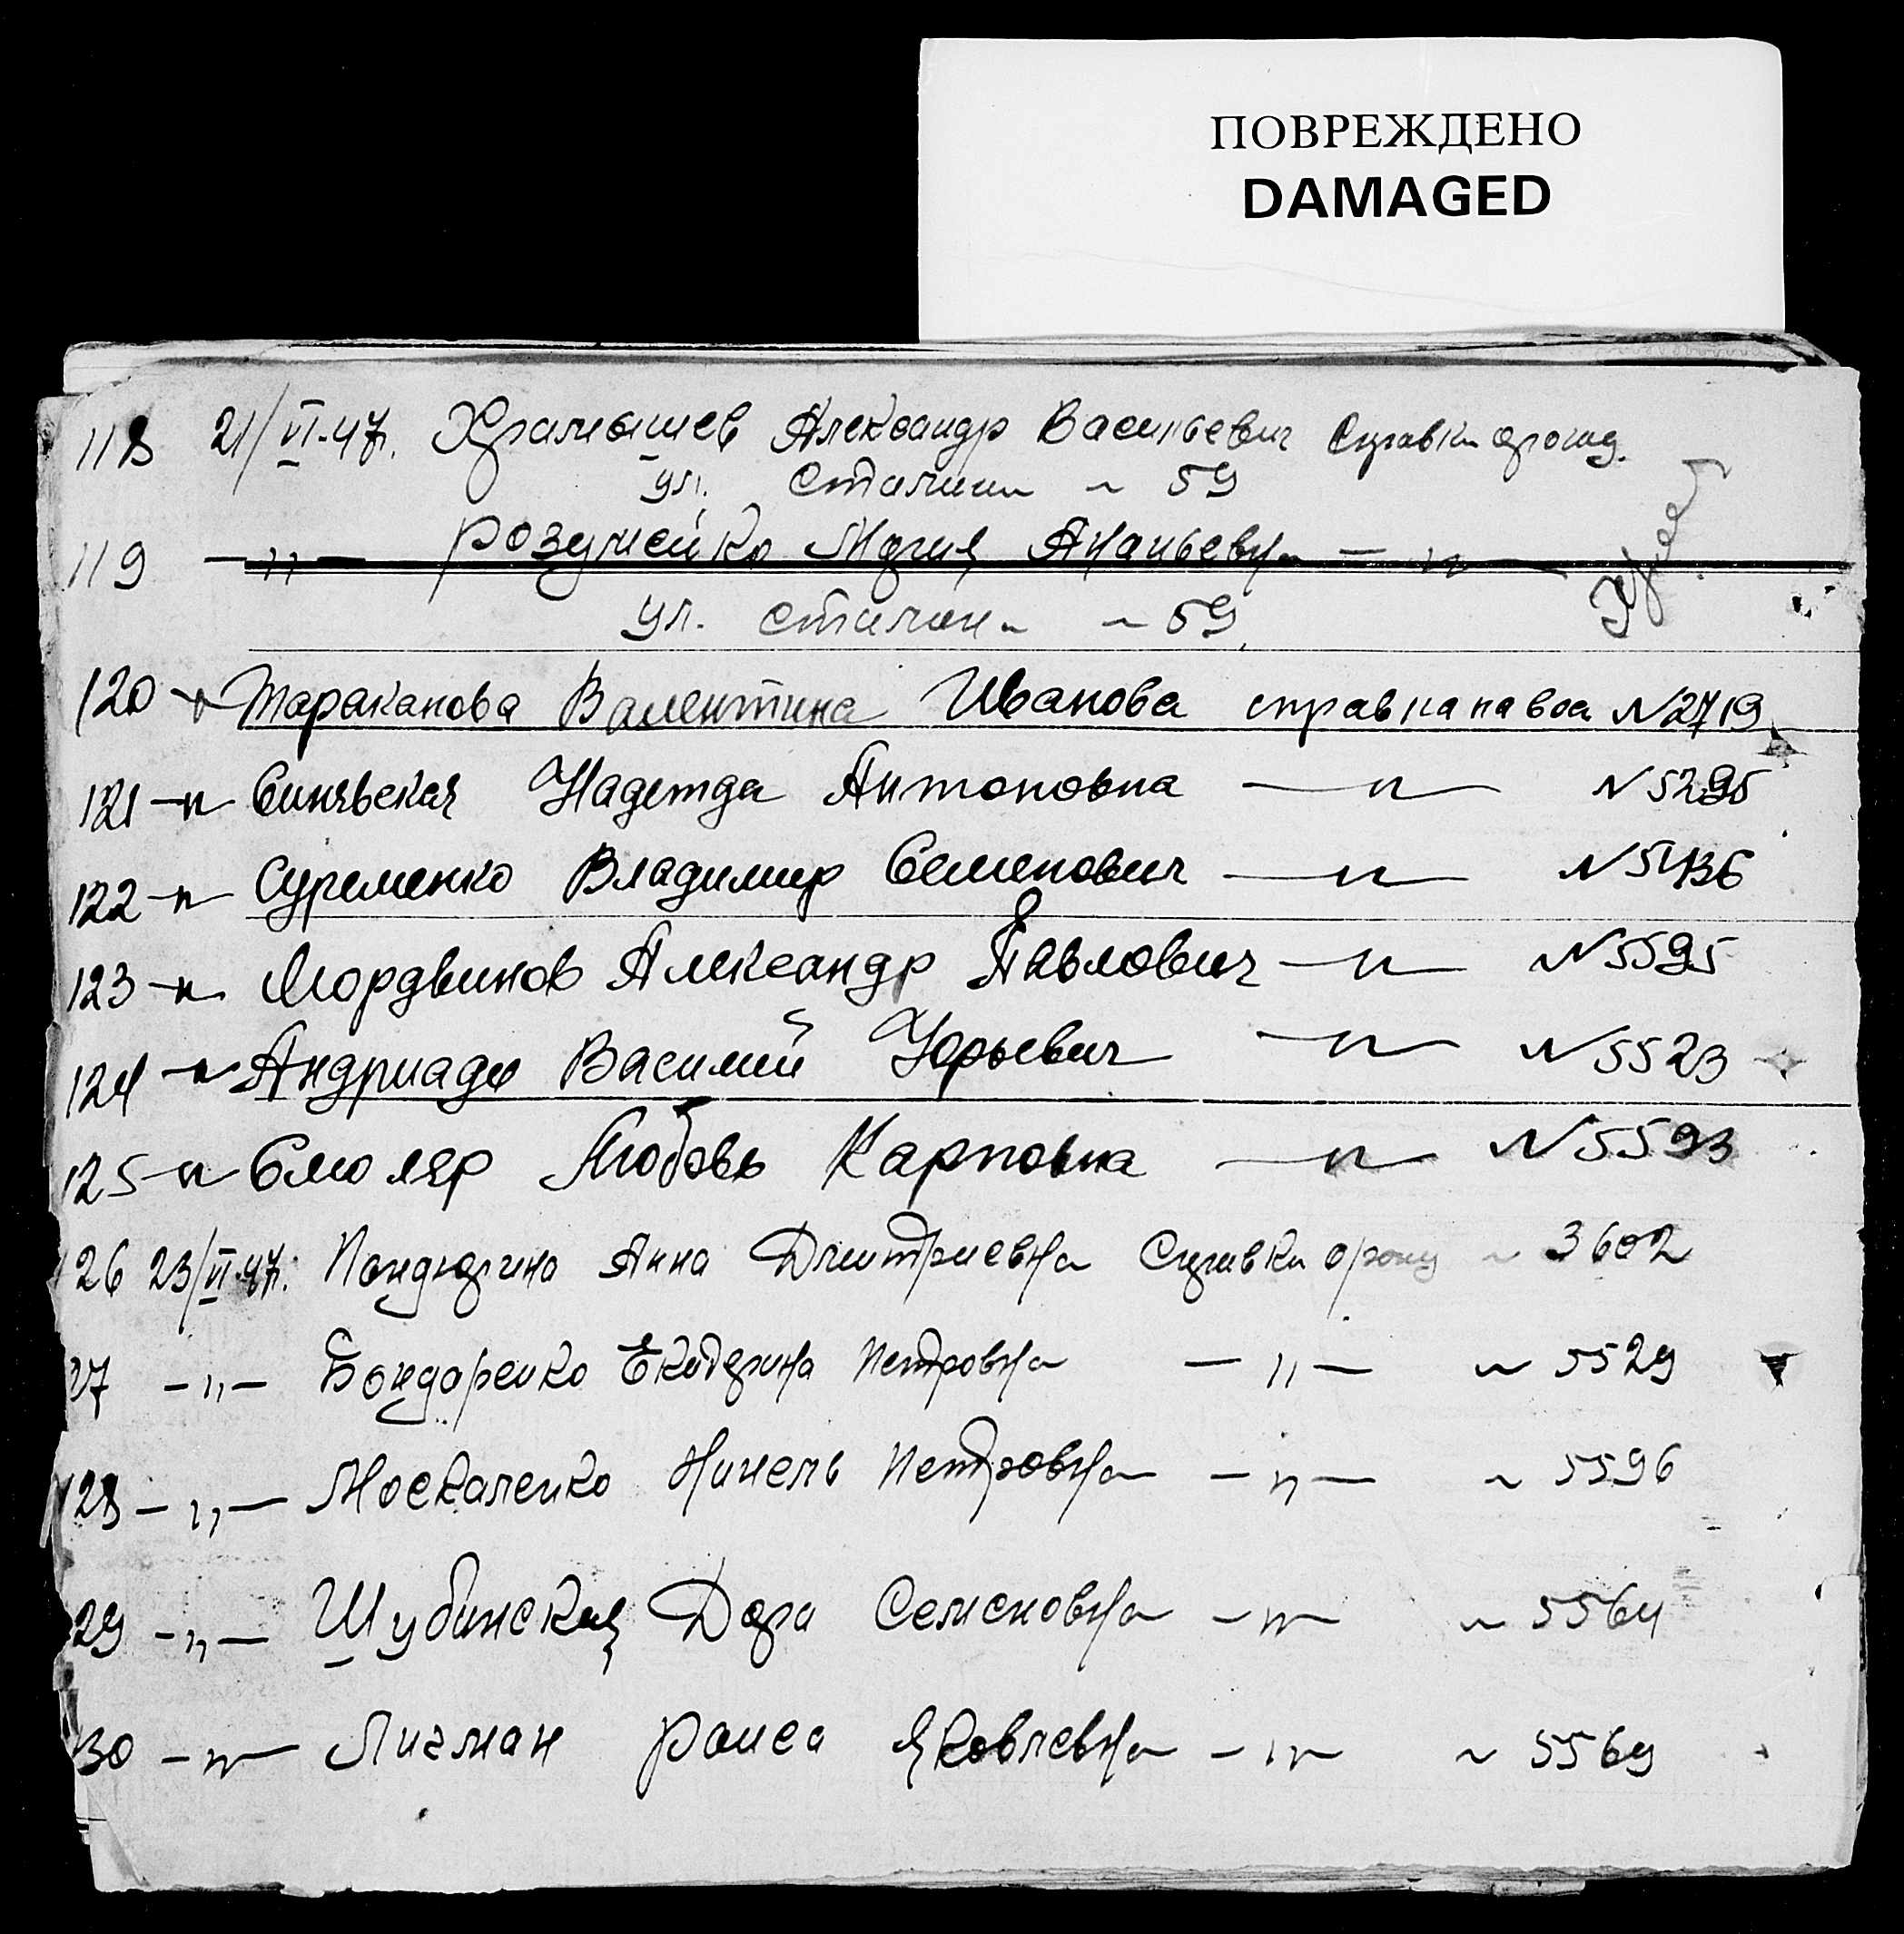 ПОВРЕЖДЕНО
DAMAGED
118 21/VI-47г. Храмышев Александр Васильевич Справки о рожд.
ул. Сталина ~ 59
119 —„— Розумейко Мария Ананьевна —„—
ул. Сталина ~ 59
120 —„ Тараканова Валентина Иванова справка на воа N2719
121 —„— Синявская Надежда Антоновна —„— N5295
122 —„— Суременко Владимир Семенович —„— N5436
123 —„— Мордвинов Александр Павлович —„— N5595
124 —„— Андриади Василий Юрьевич —„— N5523
125 —„— Смоляр Любовь Карповна —„— N5593
126 23/VI-47г. Пандюрина Анна Дмитриевна Справки о рожд ~ 3602
27 —„— Бондаренко Екатерина Петровна —„— ~ 5529
128 —„— Москаленко Нинель Петровна —„— ~ 5596
29 —„— Шубинская Дора Семеновна —„— ~ 5564
130 —„— Личман Раиса Яковлевна —„— ~ 5569